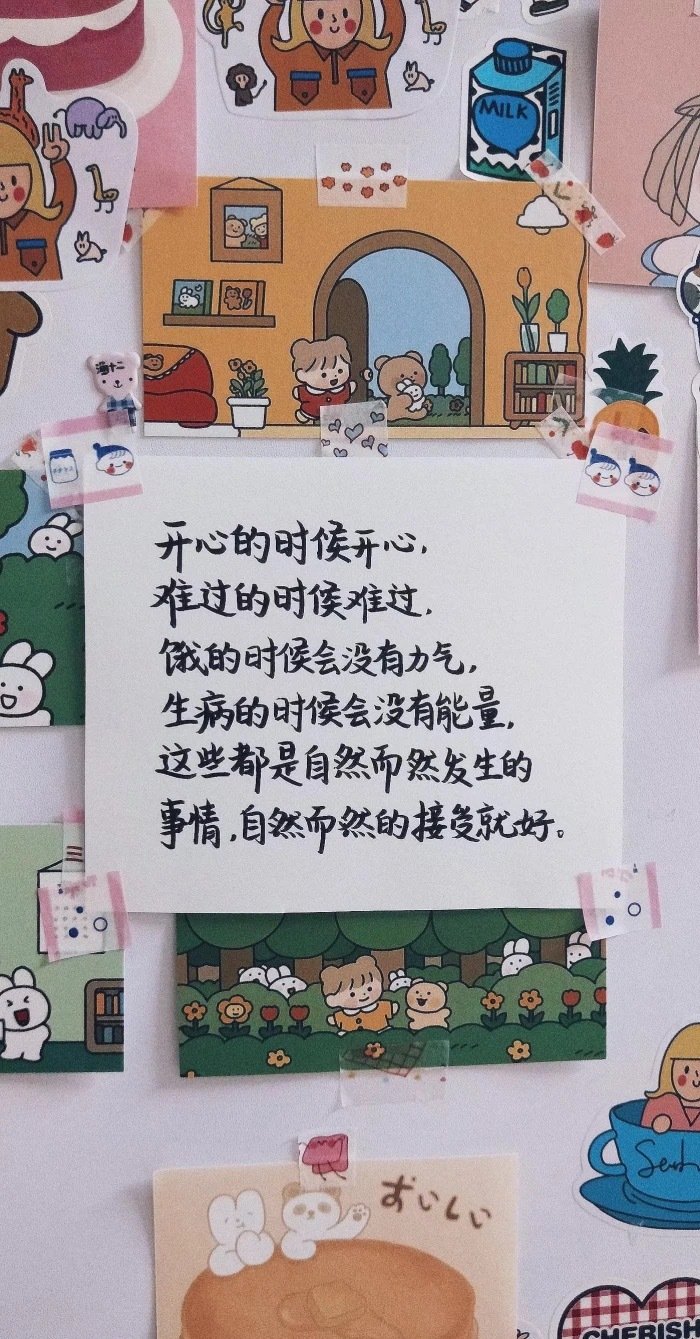 MILK
开心的时候开心,
难过的时候难过,
饿的时候会没有力气,
生病的时候会没有能量,
这些都是自然而然发生的
事情,自然而然的接受就好。
おいしい
CHERISH